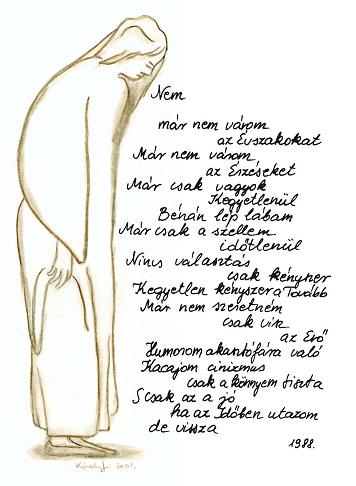 Nem
már nem várom
az Évszakokat
Már nem várom
az Érzéseket
Már csak vagyok
Kegyetlenül
Bénán lép lábam
Már csak a szellem
időtlenül
Nincs választás
csak kényszer
Kegyetlen kényszer a Tovább
Már nem szeretném
csak visz
az Erő
Humorom akasztófára való
Kacajom cinizmus
csak a könnyem tiszta
S csak az a jó
ha az Időben utazom
de vissza
1988.
2001.